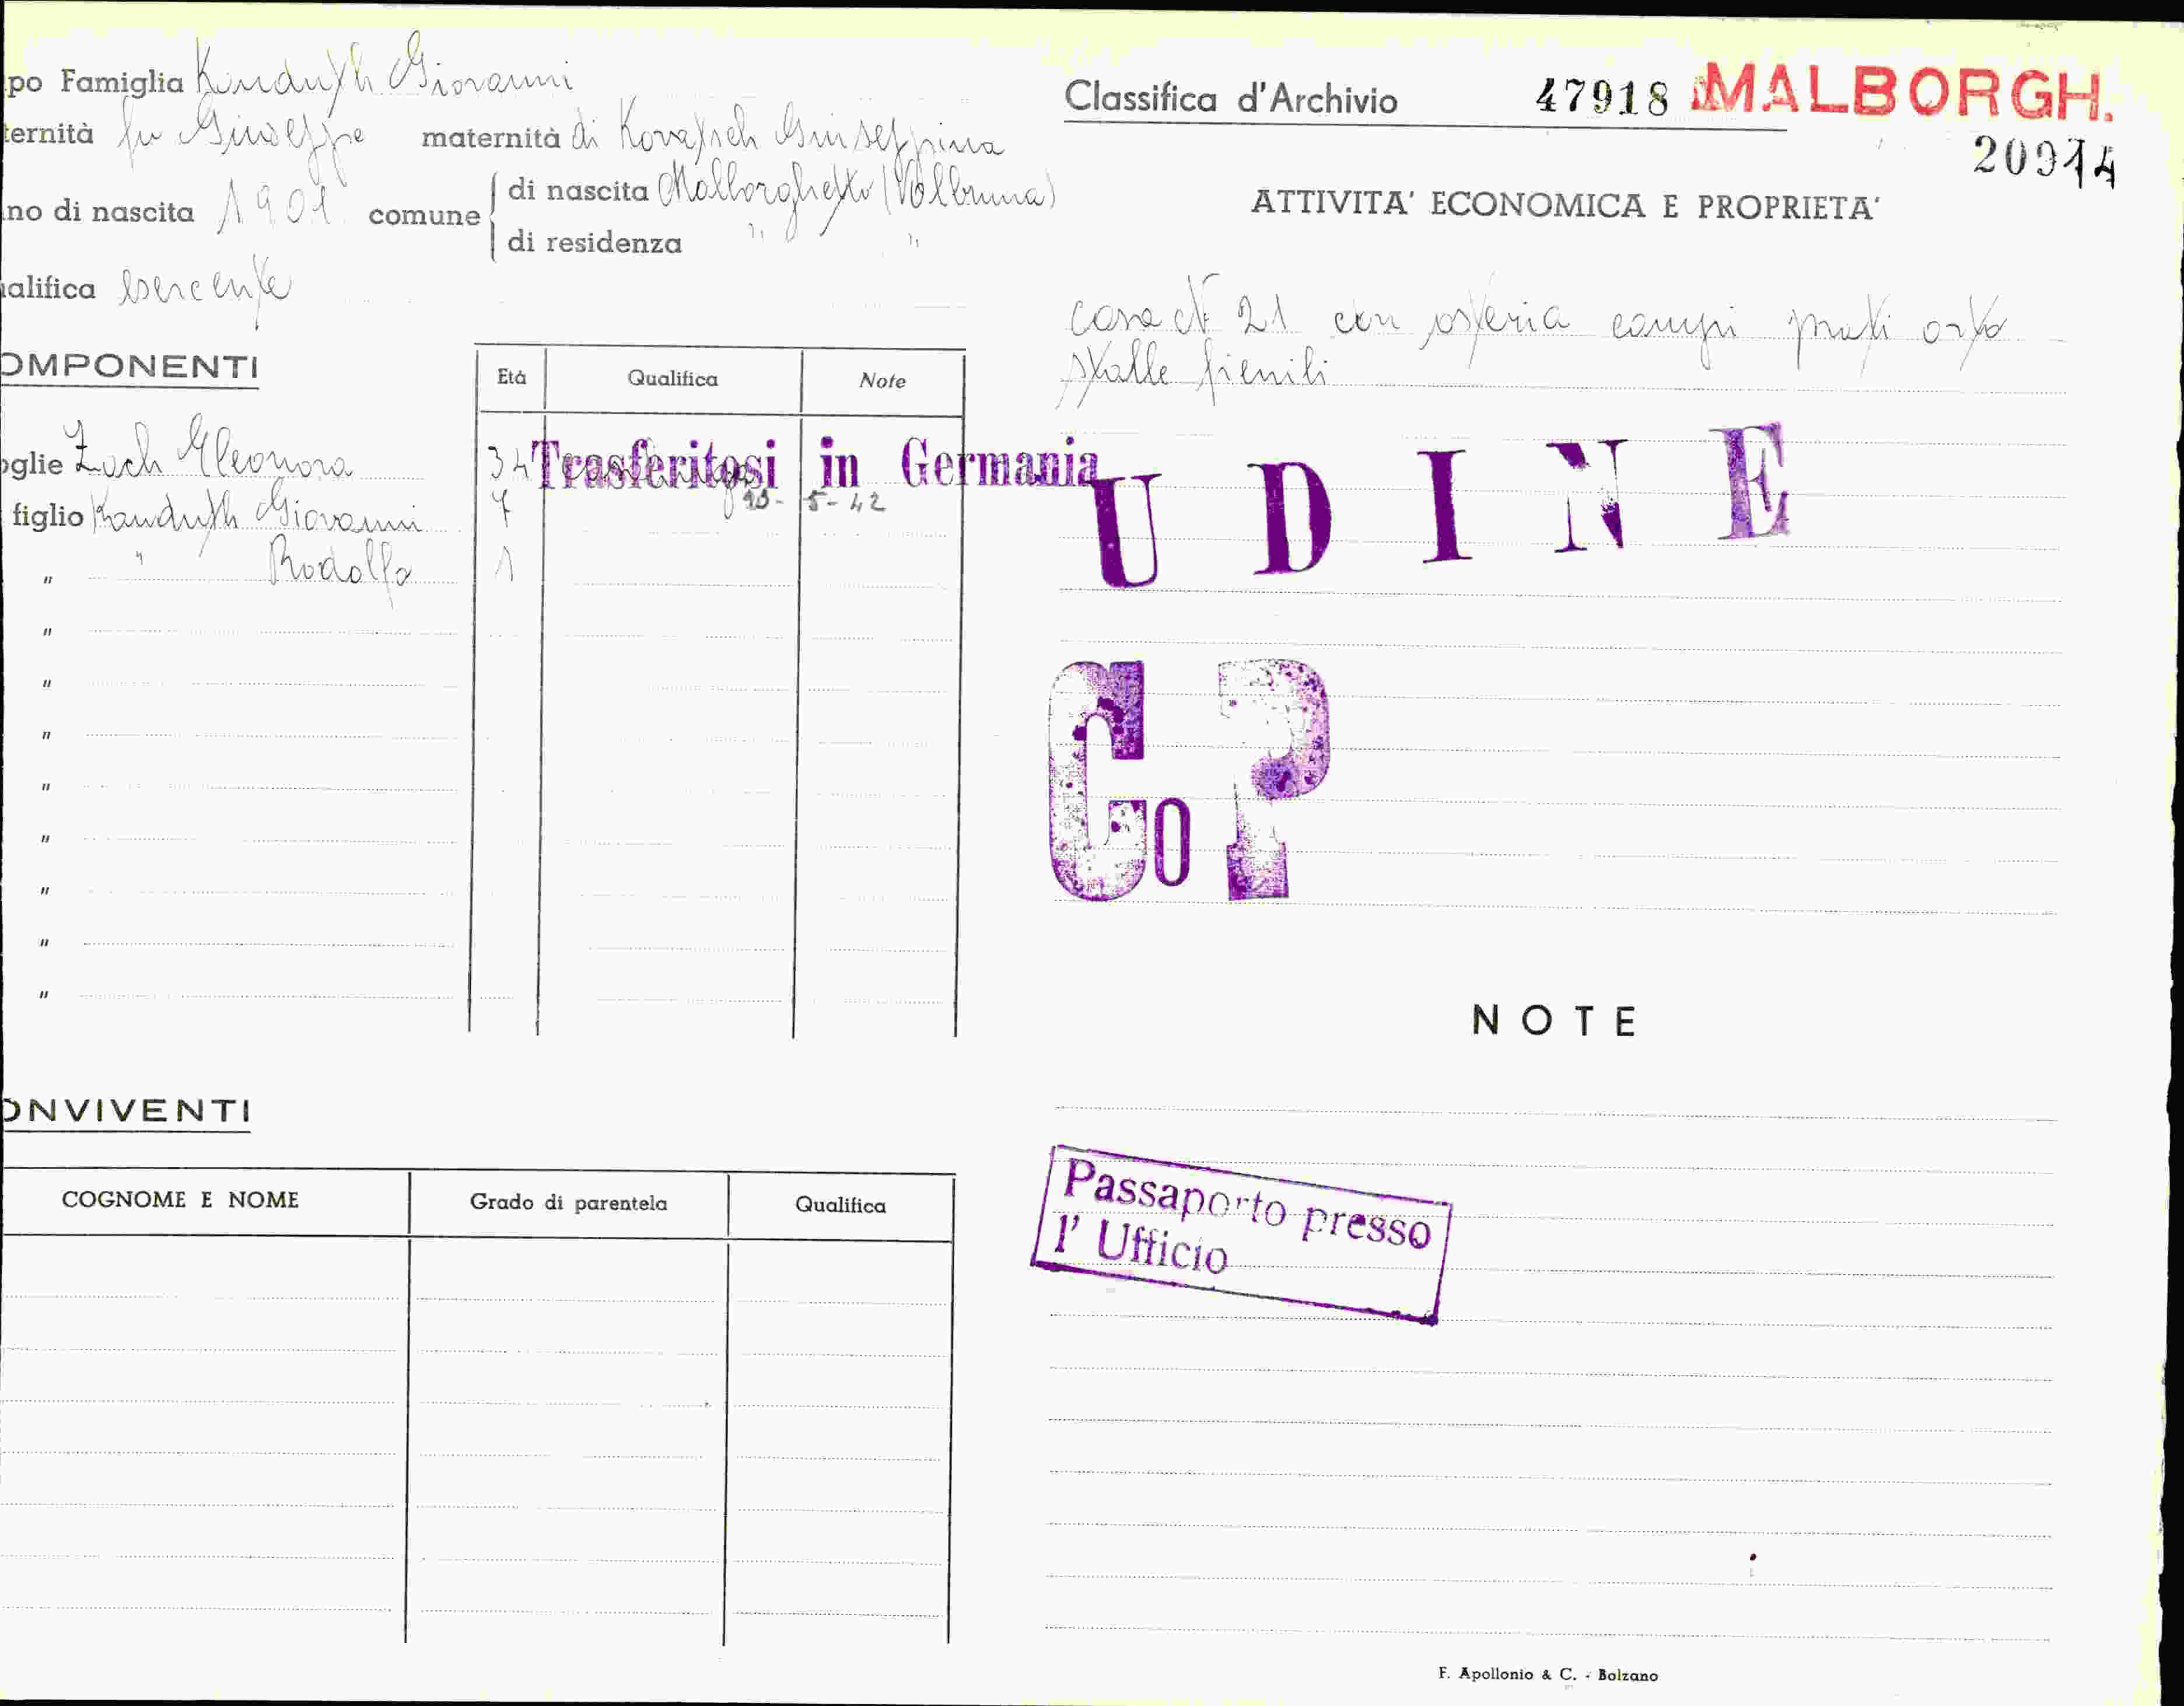 po Famiglia Kanduth Giovanni
ternità fu Giuseppe maternità di Kovatsch Giuseppina
no di nascita 1901 comune di nascita Malborghetto (Valbruna)
di residenza " "
alifica esercente
OMPONENTI
Età Qualifica Note
oglie Zoch Eleonora 34 Trasferitosi in Germania
figlio Kanduth Giovanni 7 13-5-42
" " Rodolfo 1
"
"
"
"
"
"
"
"
ONVIVENTI
COGNOME E NOME Grado di parentela Qualifica
Classifica d'Archivio 47918 MALBORGH.
20914
ATTIVITA' ECONOMICA E PROPRIETA'
casa N 21 con osteria campi prati orto
stalle fienili
UDINE
Co P
NOTE
Passaporto presso
l' Ufficio
F. Apollonio & C. - Bolzano